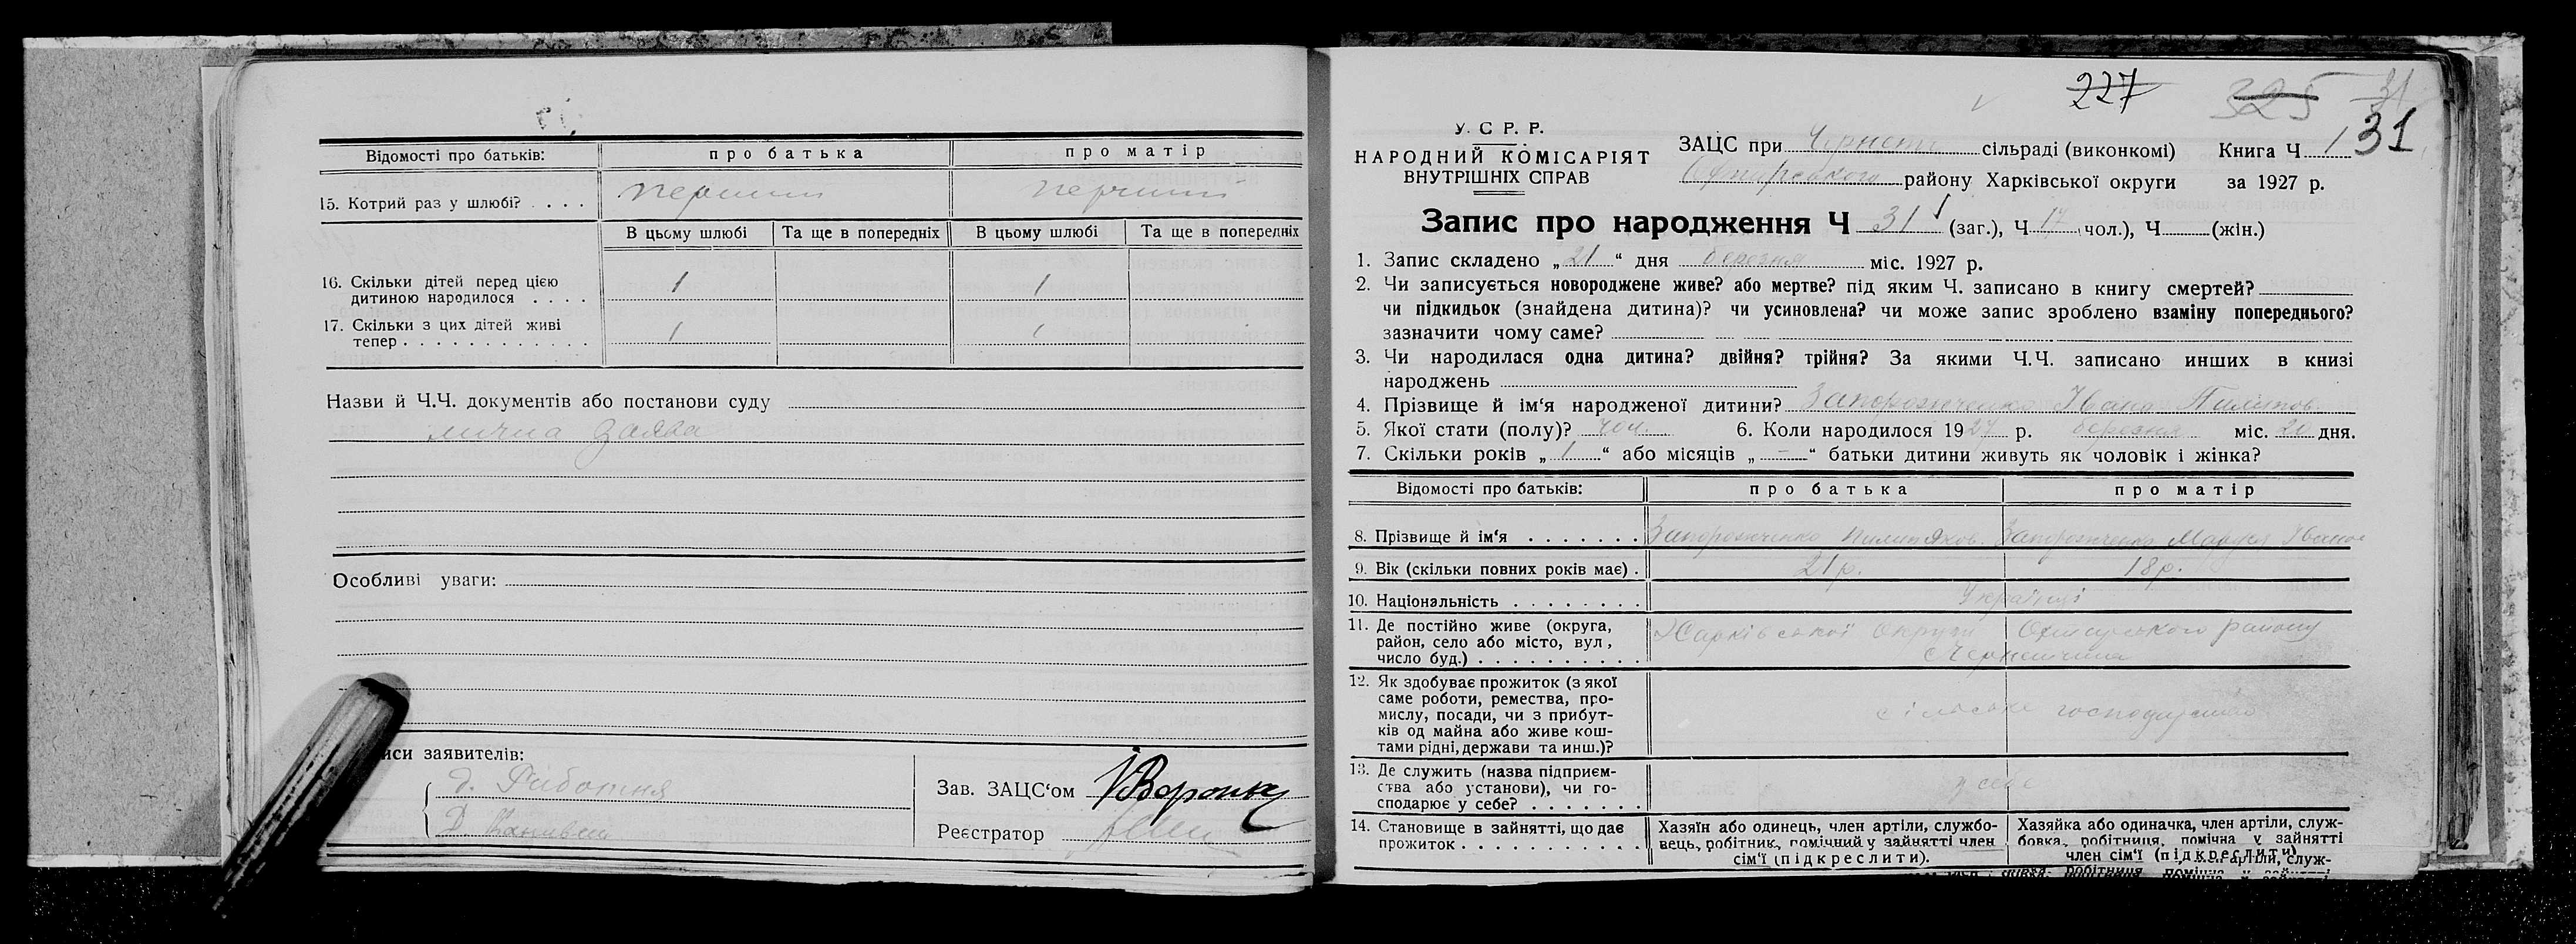 Відомості про батьків: про батька про матір
15. Котрий раз у шлюбі? . . . . перший перший
В цьому шлюбі Та ще в попередніх В цьому шлюбі Та ще в попередніх
16. Скільки дітей перед цією
дитиною народилося . . . . 1 1
17. Скільки з цих дітей живі
тепер . . . . . . . . . . . . 1 1
Назви й Ч.Ч. документів або постанови суду
лична заява
Особливі уваги:
иси заявителів:
Зав. ЗАЦС‘ом
Реєстратор
227 325 31
31
У. С. Р. Р.
НАРОДНИЙ КОМІСАРІЯТ
ВНУТРІШНІХ СПРАВ
ЗАЦС при сільраді (виконкомі) Книга Ч 1
району Харківської округи за 1927 р.
Запис про народження Ч 31 (заг.), Ч 17 чол.), Ч (жін.)
1. Запис складено „21“ дня березня міс. 1927 р.
2. Чи записується новороджене живе? або мертве? під яким Ч. записано в книгу смертей?
чи підкидьок (знайдена дитина)? чи усиновлена? чи може запис зроблено взаміну попереднього?
зазначити чому саме?
3. Чи народилася одна дитина? двійня? трійня? За якими Ч.Ч. записано инших в книзі
народжень
4. Прізвище й ім‘я народженої дитини? Запорожченко Іван Пилипов
5. Якої стати (полу)? чол. 6. Коли народилося 1927 р. березня міс. 20 дня.
7. Скільки років „1“ або місяців „-“ батьки дитини живуть як чоловік і жінка?
Відомості про батьків: про батька про матір
8. Прізвище й ім‘я . . . . . . . Запорожченко Пилип Яков. Запорожченко Маруся Іванов
9. Вік (скільки повних років має) . 21 р. 18 р.
10. Національність . . . . . . . . Українці
11. Де постійно живе (округа,
район, село або місто, вул,
число буд.) . . . . . . . . . . Харківської округи району
12. Як здобуває прожиток (з якої
саме роботи, ремества, про-
мислу, посади, чи з прибут-
ків од майна або живе кош-
тами рідні, держави та инш.)?
сільське господарство
13. Де служить (назва підприєм-
ства або установи), чи го-
сподарює у себе? . . . . . . . у себе
14. Становище в зайнятті, що дає
прожиток . . . . . . . . . . .
Хазяїн або одинець, член артіли, службо-
вець, робітник, помічний у зайнятті член
сім‘ї (підкреслити).
Хазяйка або одиначка, член артіли, служ-
бовка, робітниця, помічна у зайнятті
член сім‘ї (підкреслити)